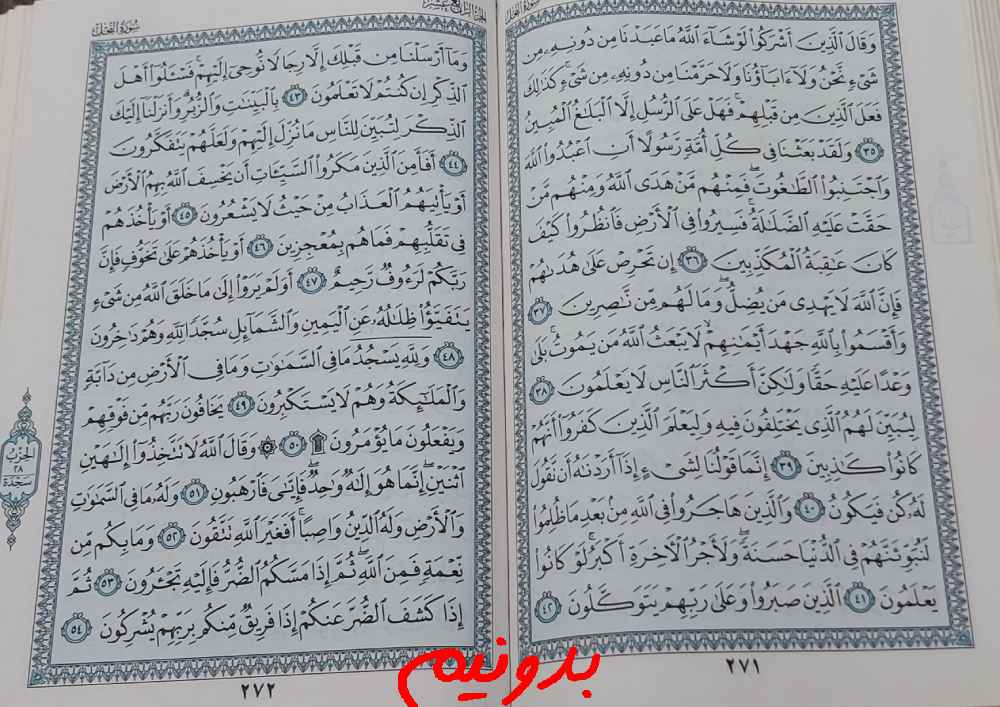 سُورَةُ النَّحْلِ
وَقَالَ الَّذِينَ أَشْرَكُوا لَوْ شَاءَ اللَّهُ مَا عَبَدْنَا مِن دُونِهِ مِن
شَيْءٍ نَّحْنُ وَلَا آبَاؤُنَا وَلَا حَرَّمْنَا مِن دُونِهِ مِن شَيْءٍ كَذَٰلِكَ
فَعَلَ الَّذِينَ مِن قَبْلِهِمْ فَهَلْ عَلَى الرُّسُلِ إِلَّا الْبَلَاغُ الْمُبِينُ
٣٥ وَلَقَدْ بَعَثْنَا فِي كُلِّ أُمَّةٍ رَّسُولًا أَنِ اعْبُدُوا اللَّهَ
وَاجْتَنِبُوا الطَّاغُوتَ فَمِنْهُم مَّنْ هَدَى اللَّهُ وَمِنْهُم مَّنْ
حَقَّتْ عَلَيْهِ الضَّلَالَةُ فَسِيرُوا فِي الْأَرْضِ فَانظُرُوا كَيْفَ
كَانَ عَاقِبَةُ الْمُكَذِّبِينَ ٣٦ إِن تَحْرِصْ عَلَىٰ هُدَاهُمْ
فَإِنَّ اللَّهَ لَا يَهْدِي مَن يُضِلُّ وَمَا لَهُم مِّن نَّاصِرِينَ ٣٧
وَأَقْسَمُوا بِاللَّهِ جَهْدَ أَيْمَانِهِمْ لَا يَبْعَثُ اللَّهُ مَن يَمُوتُ بَلَىٰ
وَعْدًا عَلَيْهِ حَقًّا وَلَٰكِنَّ أَكْثَرَ النَّاسِ لَا يَعْلَمُونَ ٣٨
لِيُبَيِّنَ لَهُمُ الَّذِي يَخْتَلِفُونَ فِيهِ وَلِيَعْلَمَ الَّذِينَ كَفَرُوا أَنَّهُمْ
كَانُوا كَاذِبِينَ ٣٩ إِنَّمَا قَوْلُنَا لِشَيْءٍ إِذَا أَرَدْنَاهُ أَن نَّقُولَ
لَهُ كُن فَيَكُونُ ٤٠ وَالَّذِينَ هَاجَرُوا فِي اللَّهِ مِن بَعْدِ مَا ظُلِمُوا
لَنُبَوِّئَنَّهُمْ فِي الدُّنْيَا حَسَنَةً وَلَأَجْرُ الْآخِرَةِ أَكْبَرُ لَوْ كَانُوا
يَعْلَمُونَ ٤١ الَّذِينَ صَبَرُوا وَعَلَىٰ رَبِّهِمْ يَتَوَكَّلُونَ ٤٢
٢٧١
الجُزْءُ الرَّابِعَ عَشَرَ
سُورَةُ النَّحْلِ
وَمَا أَرْسَلْنَا مِن قَبْلِكَ إِلَّا رِجَالًا نُّوحِي إِلَيْهِمْ فَسْئَلُوا أَهْلَ
الذِّكْرِ إِن كُنتُمْ لَا تَعْلَمُونَ ٤٣ بِالْبَيِّنَاتِ وَالزُّبُرِ وَأَنزَلْنَا إِلَيْكَ
الذِّكْرَ لِتُبَيِّنَ لِلنَّاسِ مَا نُزِّلَ إِلَيْهِمْ وَلَعَلَّهُمْ يَتَفَكَّرُونَ
٤٤ أَفَأَمِنَ الَّذِينَ مَكَرُوا السَّيِّئَاتِ أَن يَخْسِفَ اللَّهُ بِهِمُ الْأَرْضَ
أَوْ يَأْتِيَهُمُ الْعَذَابُ مِنْ حَيْثُ لَا يَشْعُرُونَ ٤٥ أَوْ يَأْخُذَهُمْ
فِي تَقَلُّبِهِمْ فَمَا هُم بِمُعْجِزِينَ ٤٦ أَوْ يَأْخُذَهُمْ عَلَىٰ تَخَوُّفٍ فَإِنَّ
رَبَّكُمْ لَرَءُوفٌ رَّحِيمٌ ٤٧ أَوَلَمْ يَرَوْا إِلَىٰ مَا خَلَقَ اللَّهُ مِن شَيْءٍ
يَتَفَيَّؤُا ظِلَالُهُ عَنِ الْيَمِينِ وَالشَّمَائِلِ سُجَّدًا لِّلَّهِ وَهُمْ دَاخِرُونَ
٤٨ وَلِلَّهِ يَسْجُدُ مَا فِي السَّمَاوَاتِ وَمَا فِي الْأَرْضِ مِن دَابَّةٍ
وَالْمَلَائِكَةُ وَهُمْ لَا يَسْتَكْبِرُونَ ٤٩ يَخَافُونَ رَبَّهُم مِّن فَوْقِهِمْ
وَيَفْعَلُونَ مَا يُؤْمَرُونَ ۩ ٥٠ ۞ وَقَالَ اللَّهُ لَا تَتَّخِذُوا إِلَٰهَيْنِ
اثْنَيْنِ إِنَّمَا هُوَ إِلَٰهٌ وَاحِدٌ فَإِيَّايَ فَارْهَبُونِ ٥١ وَلَهُ مَا فِي السَّمَاوَاتِ
وَالْأَرْضِ وَلَهُ الدِّينُ وَاصِبًا أَفَغَيْرَ اللَّهِ تَتَّقُونَ ٥٢ وَمَا بِكُم مِّن
نِّعْمَةٍ فَمِنَ اللَّهِ ثُمَّ إِذَا مَسَّكُمُ الضُّرُّ فَإِلَيْهِ تَجْأَرُونَ ٥٣ ثُمَّ
إِذَا كَشَفَ الضُّرَّ عَنكُمْ إِذَا فَرِيقٌ مِّنكُم بِرَبِّهِمْ يُشْرِكُونَ ٥٤
الحِزْبُ
٢٨
سَجْدَة
٢٧٢
بدونیم